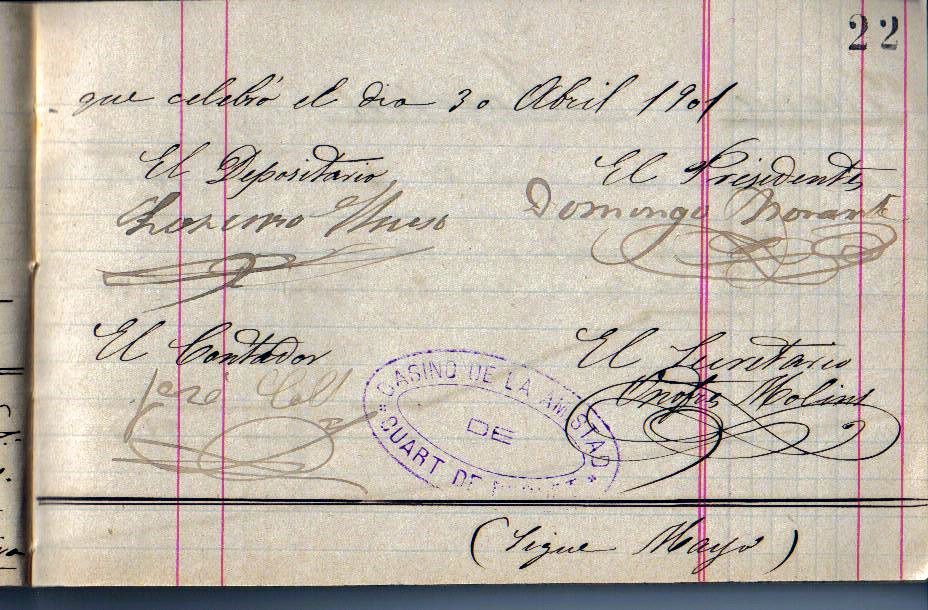 22
que celebró el dia 30 Abril 1901
El Depositario
El Presidente
Lorenzo
Domingo Morant
El Contador
El Secretario
José Coll
Onofre Molins
CASINO DE LA AMISTAD
DE
CUART DE
(Sigue Mayo)